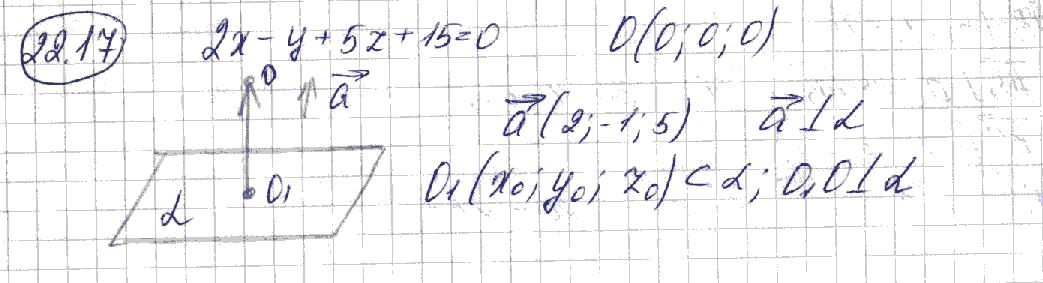 22.17 2x - y + 5z + 15 = 0 O(0; 0; 0)
O a⃗
a⃗(2; -1; 5) a⃗ ⊥ α
O₁(x₀; y₀; z₀) ⊂ α; O₁O ⊥ α
O₁
α